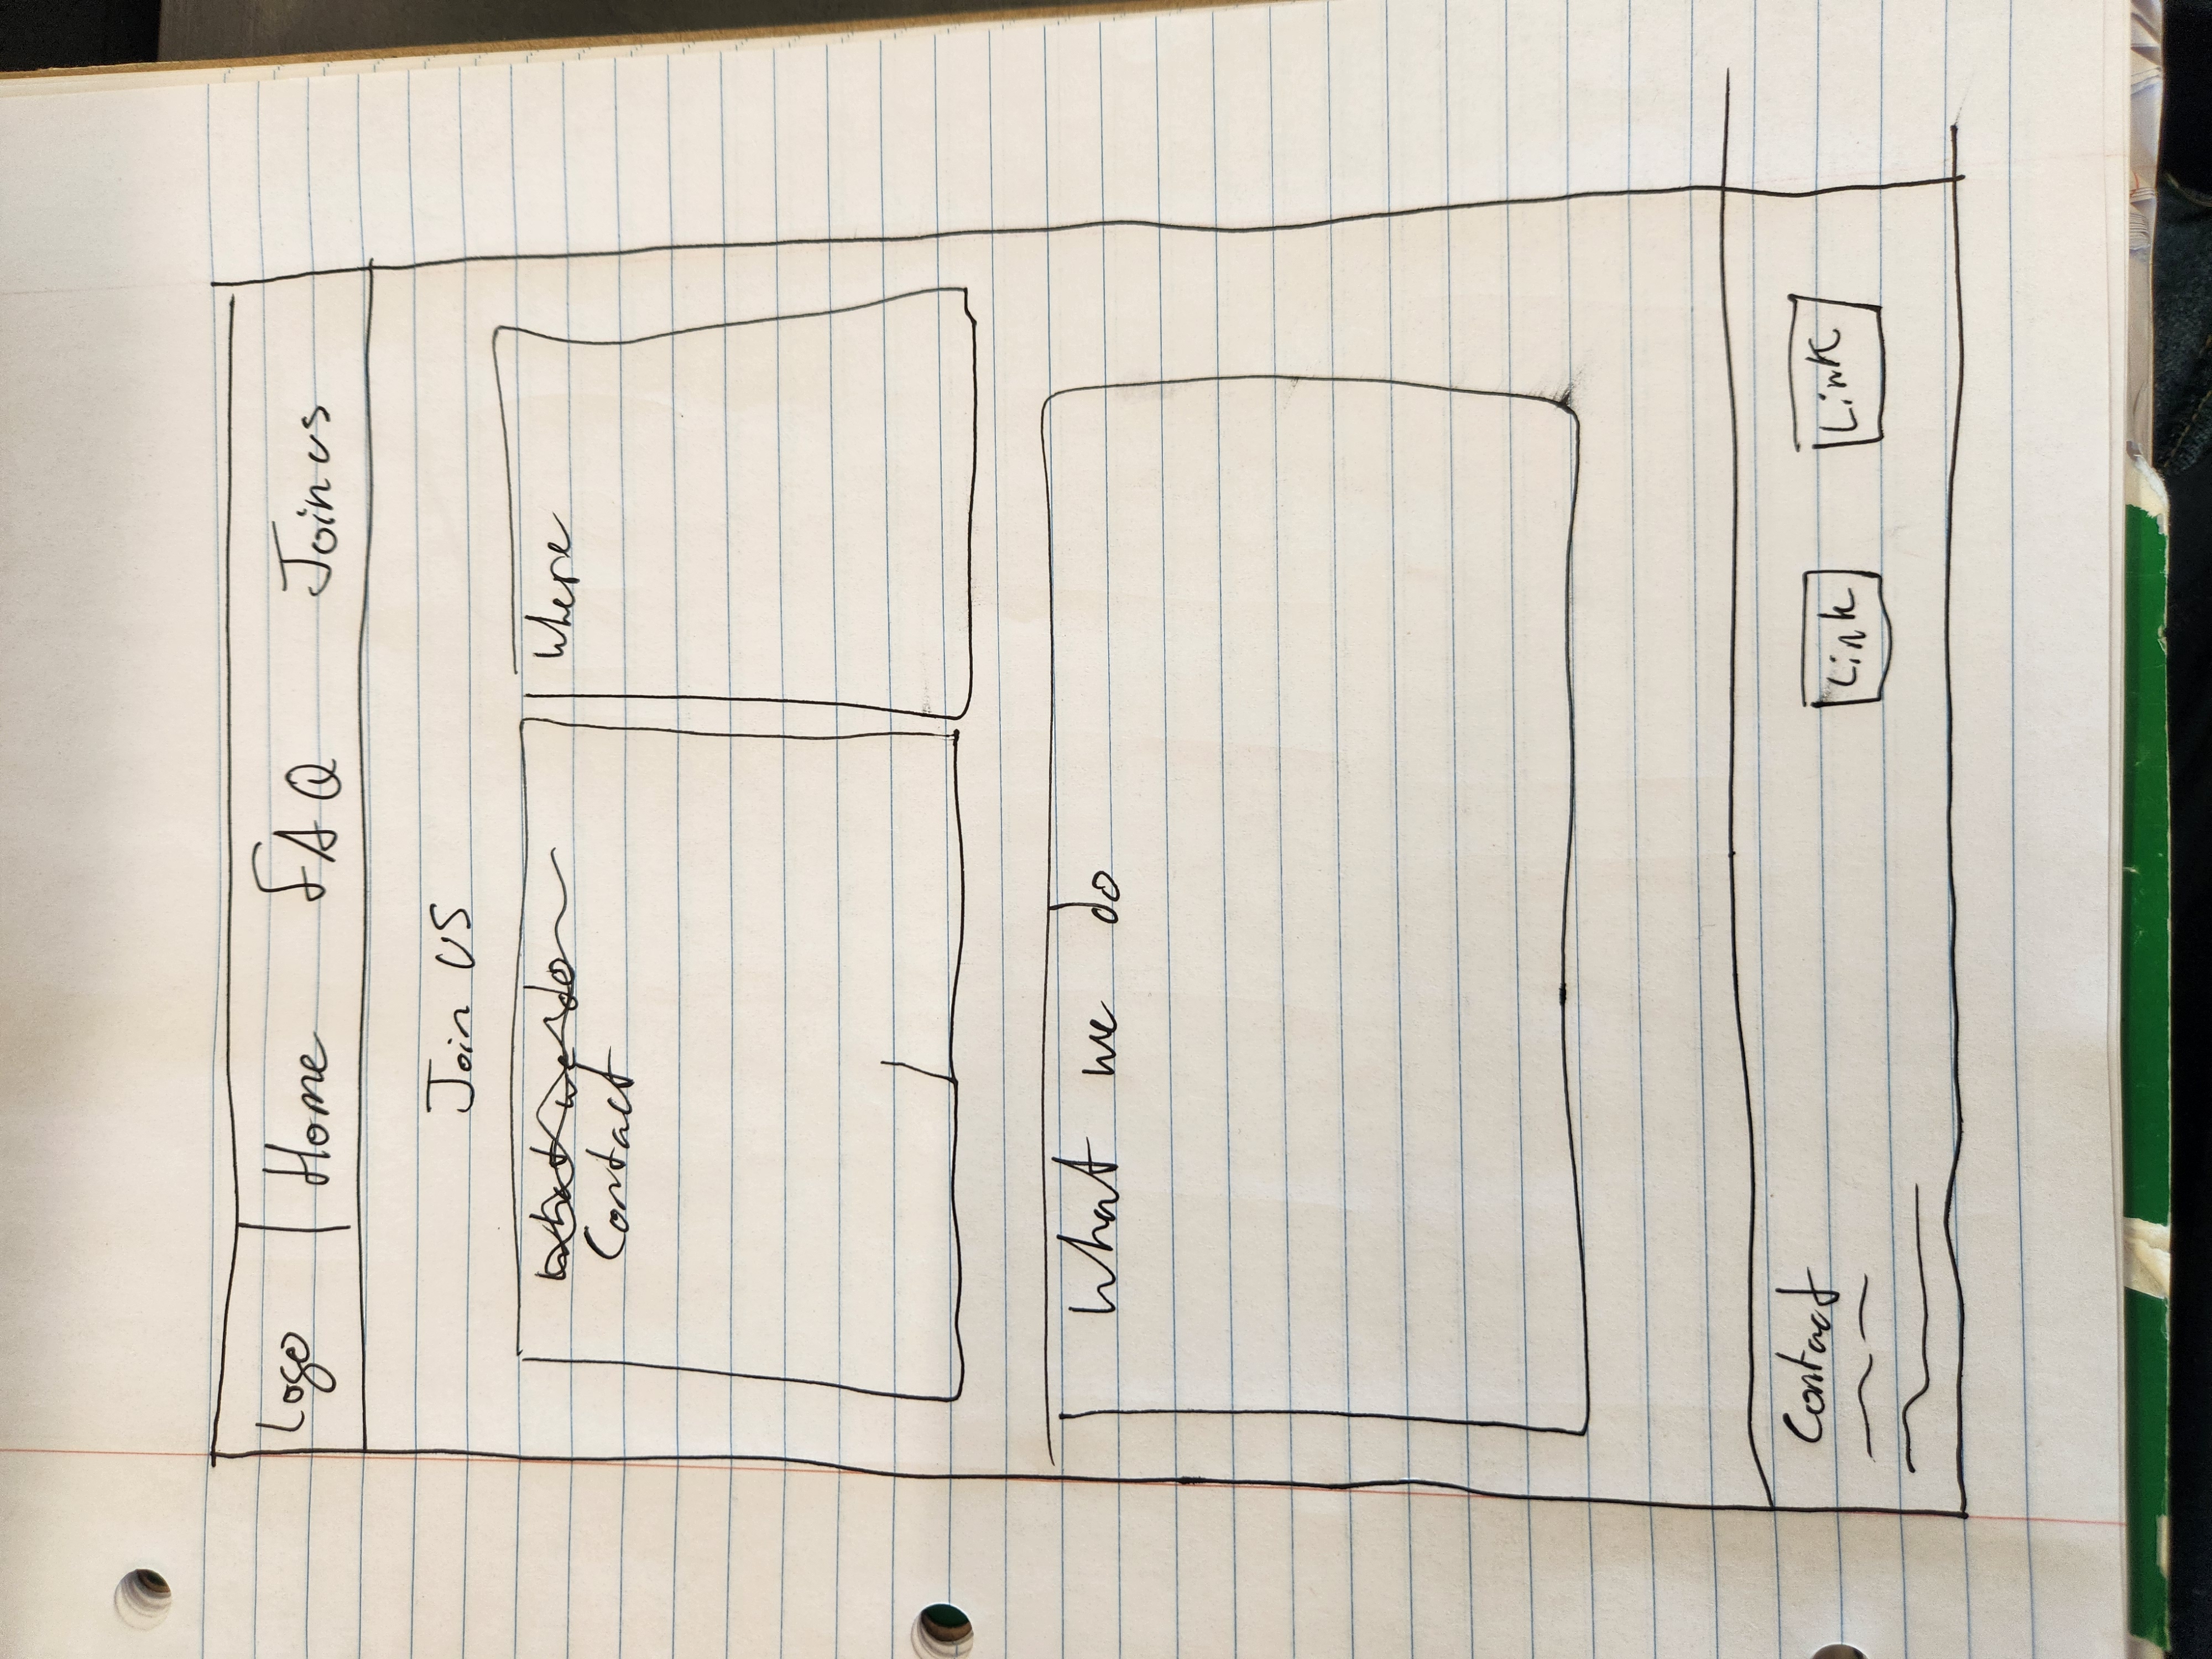 Logo Home FAQ Join us
Join US
What we do
Contact
Where
What we do
Contact
Link Link